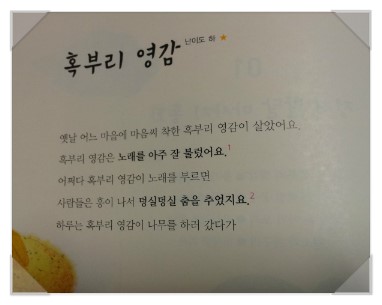 혹부리 영감 난이도 하 ★
옛날 어느 마을에 마음씨 착한 혹부리 영감이 살았어요.
혹부리 영감은 노래를 아주 잘 불렀어요.1
어쩌다 혹부리 영감이 노래를 부르면
사람들은 흥이 나서 덩실덩실 춤을 추었지요.2
하루는 혹부리 영감이 나무를 하러 갔다가